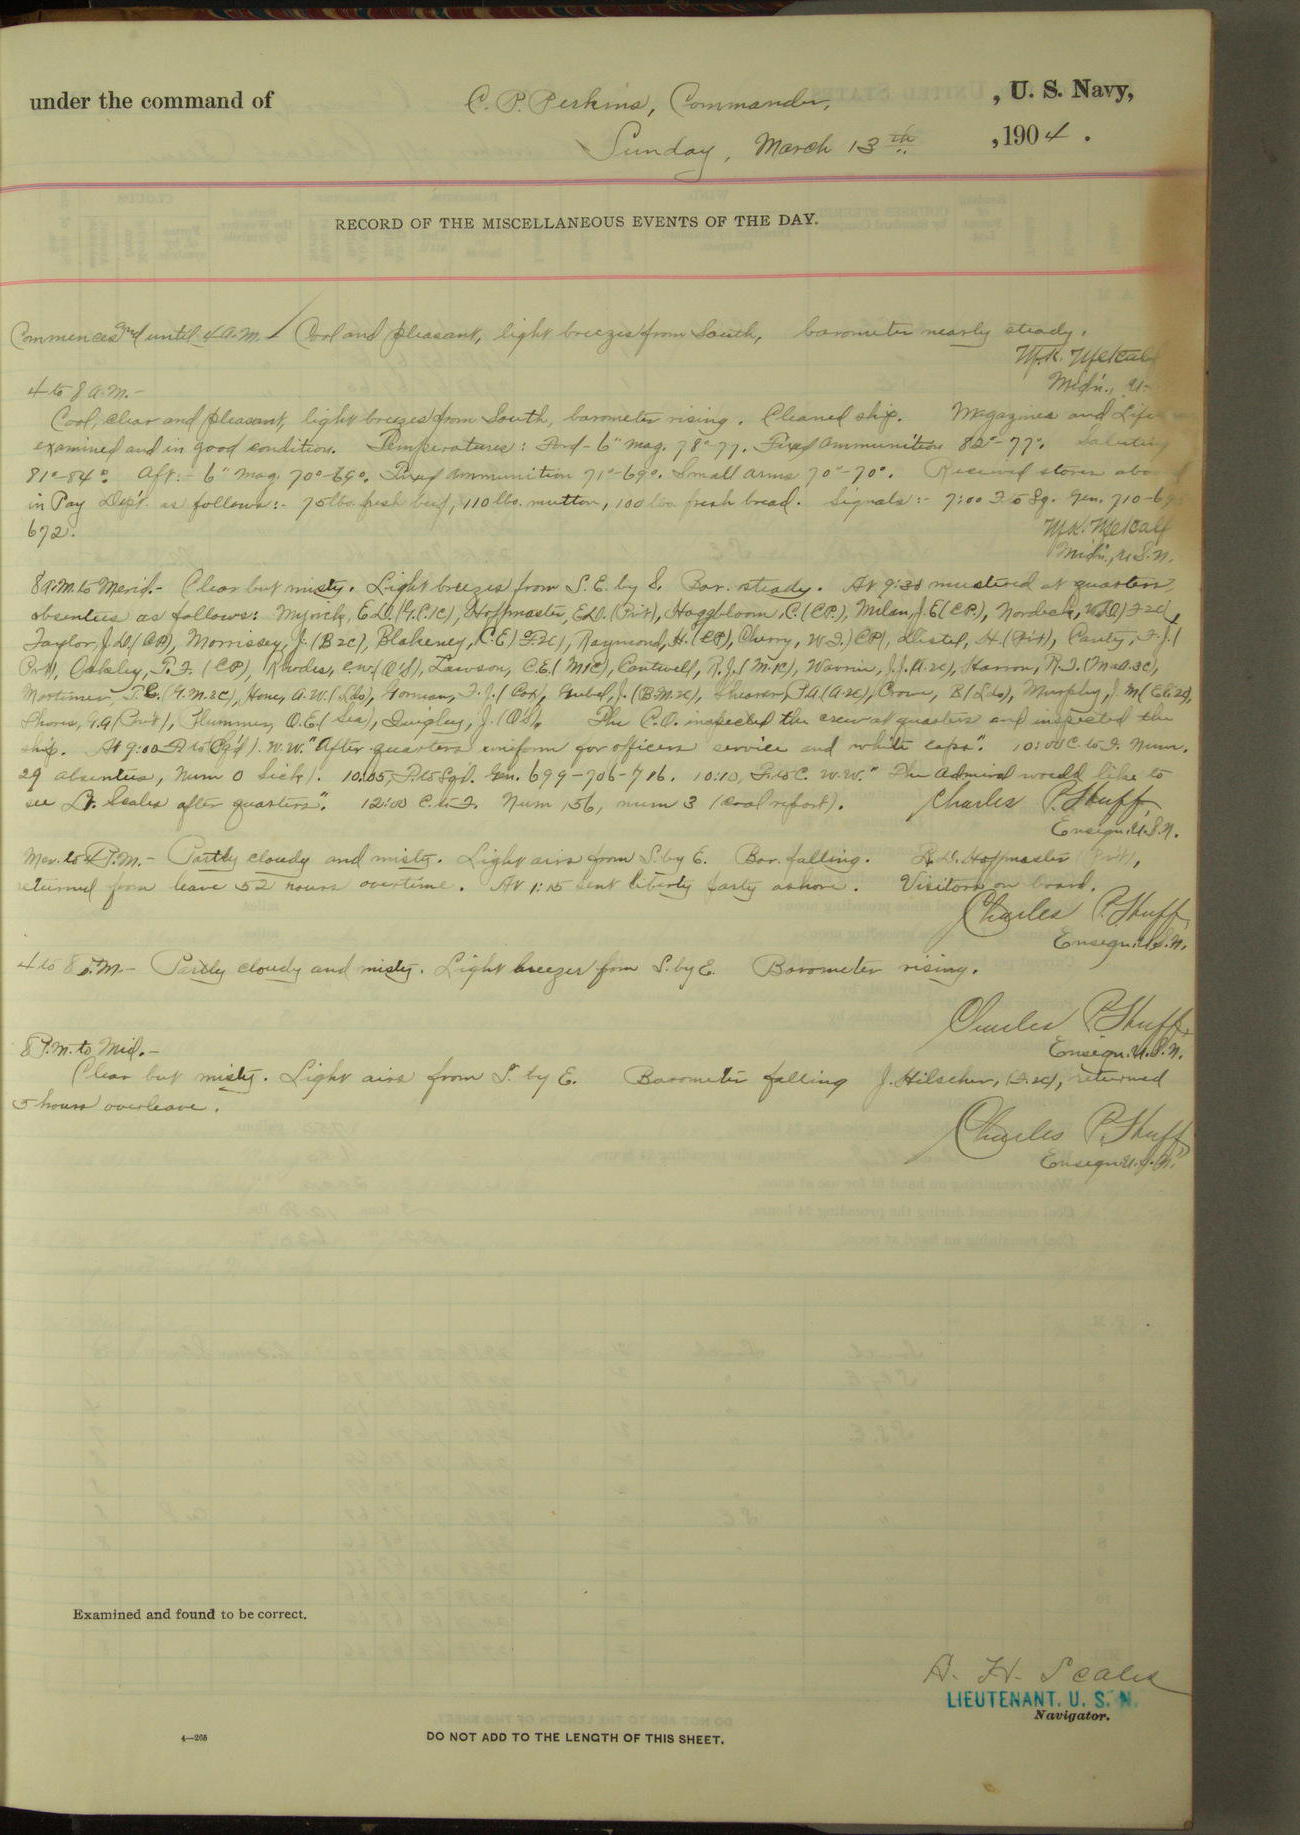 under the command of C. P. Perkins, Commander, , U. S. Navy,
Sunday, March 13th , 1904 .
RECORD OF THE MISCELLANEOUS EVENTS OF THE DAY.
Commences and until 4 A.M. Cool and pleasant, light breezes from South, barometer nearly steady.
M.K. Metcalf
Mid'n.,
4 to 8 A.M. -
Cool, clear and pleasant, light breezes from South, barometer rising. Cleaned ship. Magazines and Life
examined and in good condition. Temperatures: Fwd - 6" mag. 78°-77. Fixed Ammunition 82°-77°. Saluting
81°-84°. Aft: - 6" mag. 70°-69°. Fixed Ammunition 71°-69°. Small arms 70°-70°. Received stores aboard
in Pay Dept. as follows: - 75 lbs. fresh beef, 110 lbs. mutton, 100 lbs fresh bread. Signals: - 7:00 F. to Sq. Gen. 710-
672.
M.K. Metcalf
Mid'n., U.S.N.
8 A.M. to Merid. - Clear but misty. Light breezes from S.E. by S. Bar. steady. At 9:30 mustered at quarters,
absentees as follows: Myrick, E.D. (G.C.1C), Hoffmaster, E.D. (Pvt), Haggbloom, C. (C.P.), Milan, J.E. (C.P.), Nordeck, (F2C),
Taylor, J.D. (C.P.), Morrissey, J. (B2C), Blakeney, C.E. (F2C), Raymond, H. (C.P.), Cherry, W.F. (C.P.), Distel, H. (Pvt), Canty, F.J. (
Pvt), Oakeley, T.F. (C.P.), Rhodes, C.W. (O.S.), Lawson, C.E. (M1C), Cantwell, R.J. (M.1C), Warris, J.J. (A.2C), Harron, R.F. (M.a.a.3C),
Mortimer, T.C. (G.M.2C), Hone, A.W. (Lds), Gorman, F.J. (Cox), Gubel, J. (B.M.2C), Shearer, P.A. (A2C), Crow, B. (Lds), Murphy, J.M. (El.2C),
Shores, G.A. (Pvt), Plummer, O.E. (Sea), Quigley, J. (O.S.). The C.O. inspected the crew at quarters and inspected the
ship. At 9:00 F to Sq'd). W.W. "After quarters uniform for officers service and white caps". 10:00 C. to F. Num.
29 absentees, num 0 Sick). 10:05, F. to Sq'd. Gen. 699-706-716. 10:10, F. to C. W.W. "The Admiral would like to
see Lt. Scales after quarters". 12:00 C. to F. Num 156, num 3 (coal report). Charles P. Huff,
Ensign. U.S.N.
Mer. to 4 P.M. - Partly cloudy and misty. Light airs from S. by E. Bar. falling. E.D. Hoffmaster (Pvt),
returned from leave 52 hours overtime. At 1:15 sent liberty party ashore. Visitors on board.
Charles P. Huff,
Ensign. U.S.N.
4 to 8 P.M. - Partly cloudy and misty. Light breezes from S. by E. Barometer rising.
Charles P. Huff,
Ensign. U.S.N.
8 P.M. to Mid. -
Clear but misty. Light airs from S. by E. Barometer falling J. Hilscher, (F.2C), returned
5 hours overleave.
Charles P. Huff,
Ensign U.S.N.
Examined and found to be correct.
A. H. Scales
LIEUTENANT. U. S. N.
Navigator.
4—265
DO NOT ADD TO THE LENGTH OF THIS SHEET.